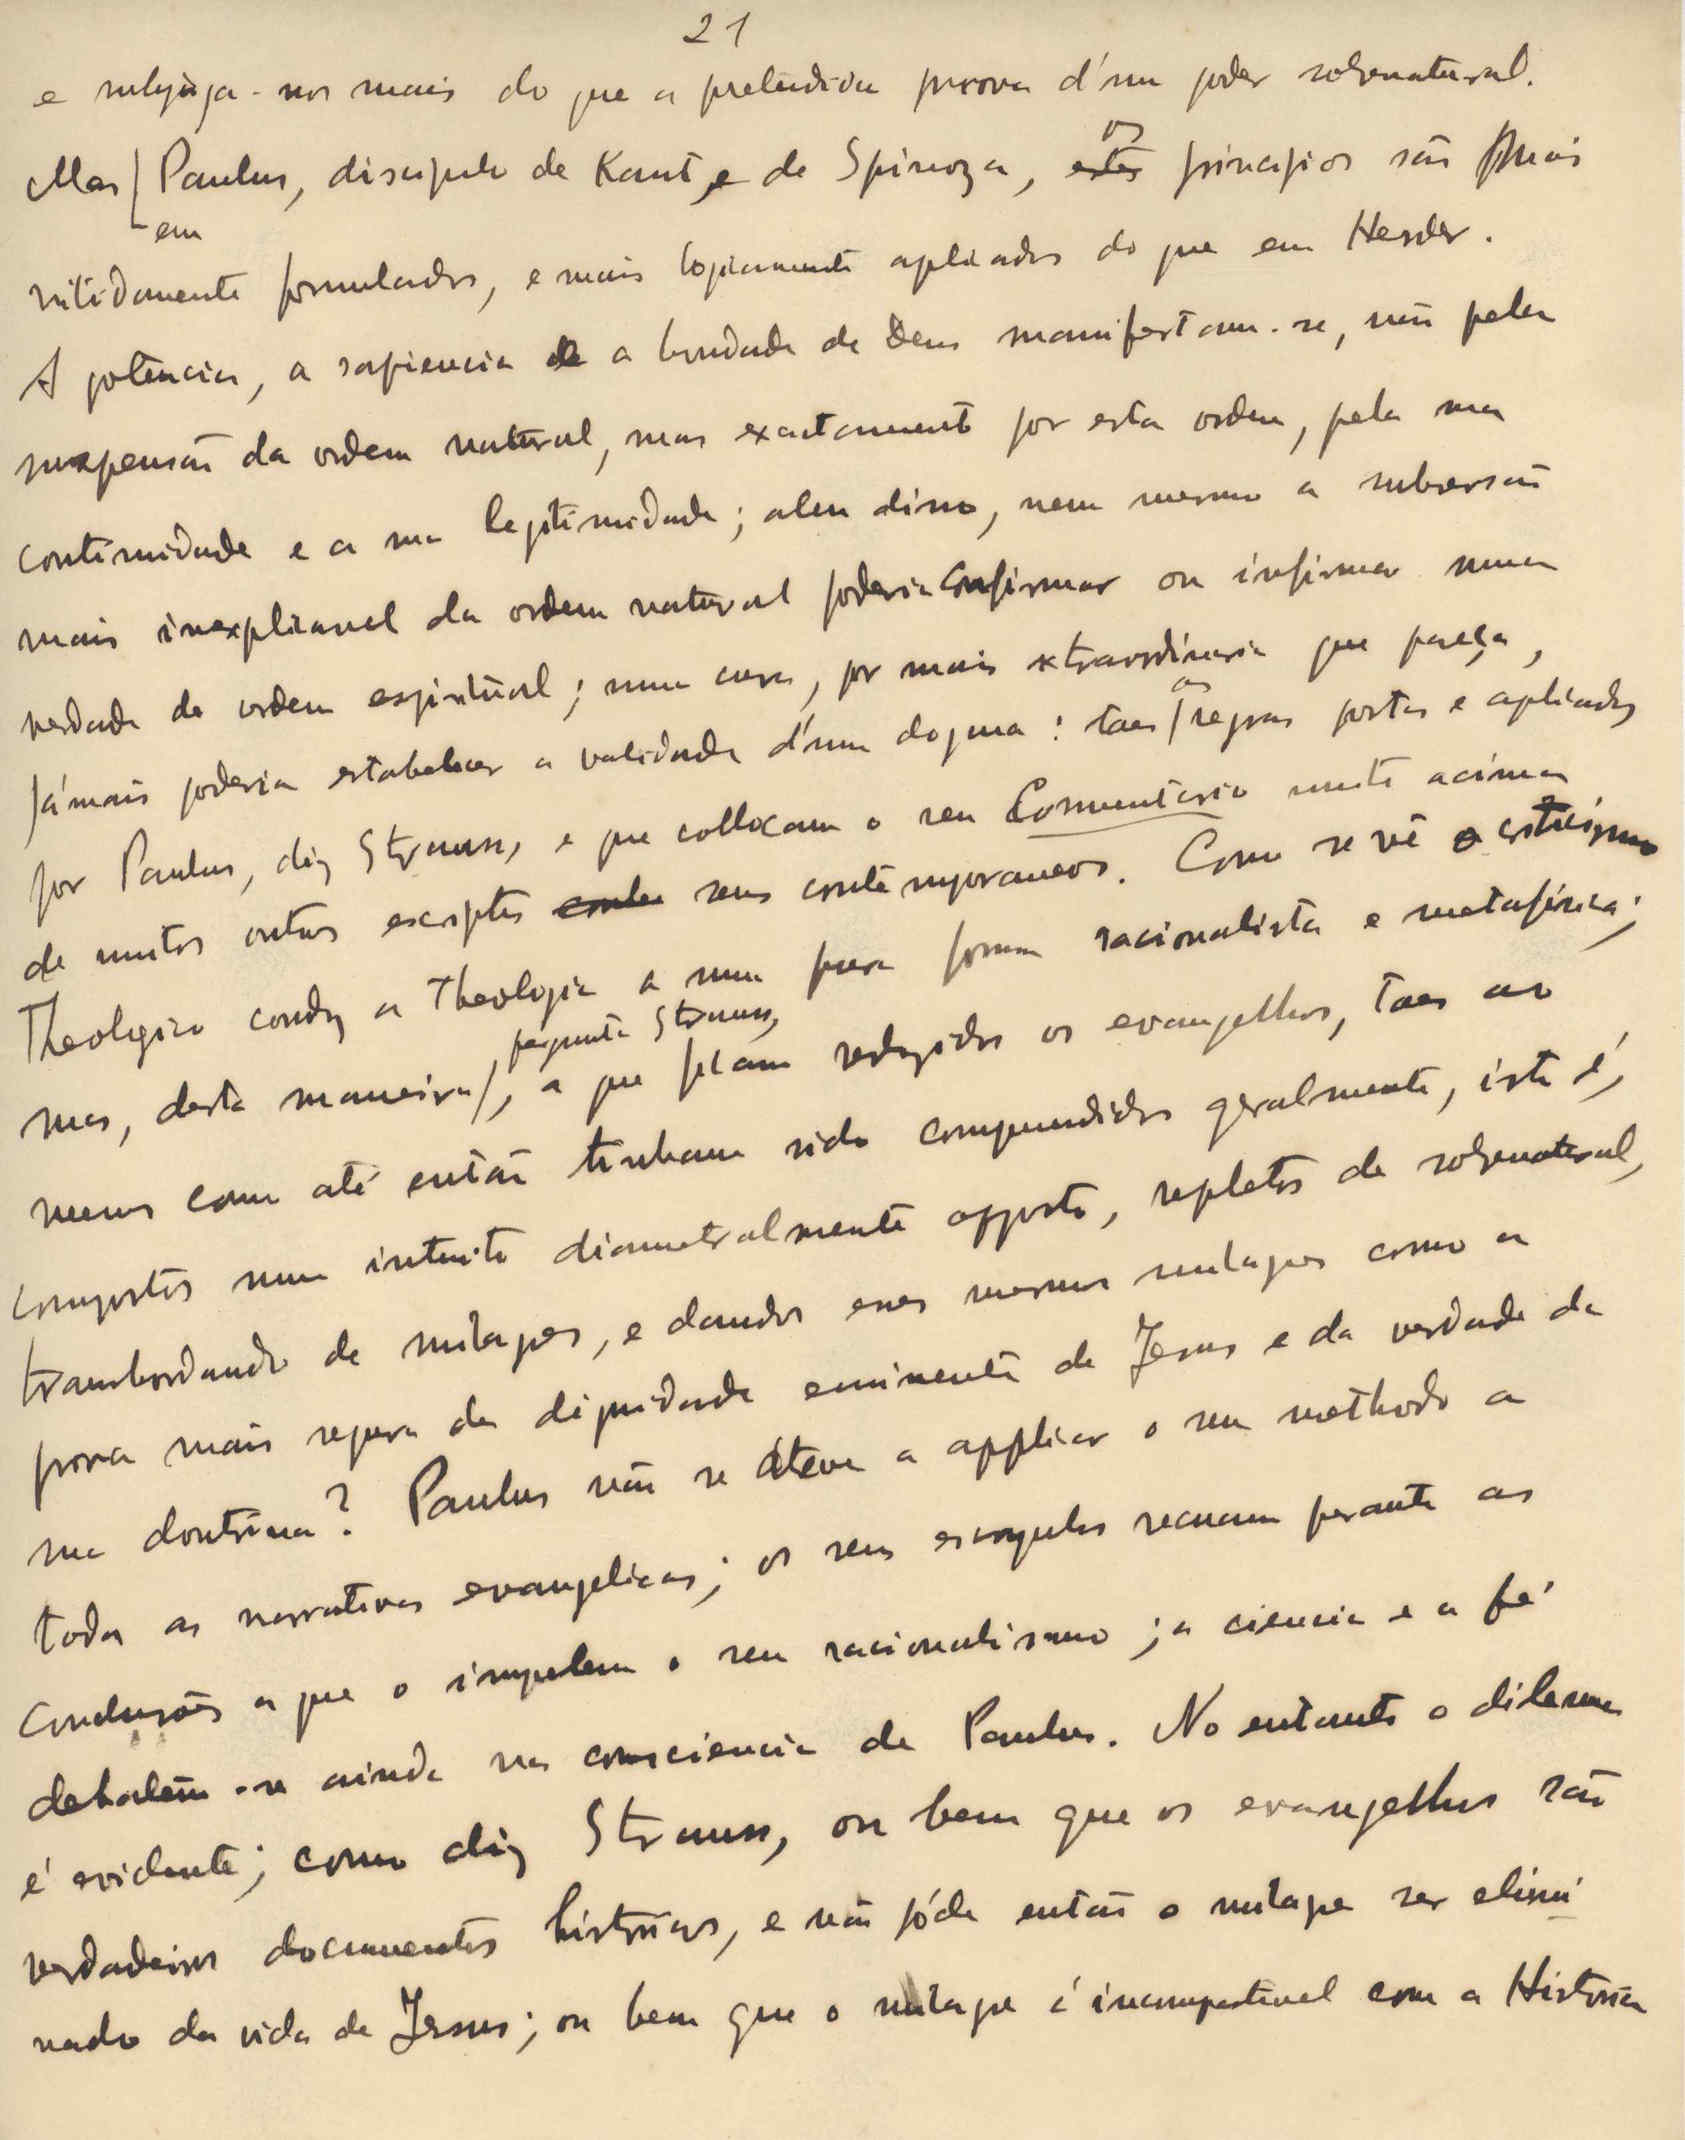 21
e subjuga-nos mais do que a pretendida prova d'um poder sobrenatural.
os
Mas Paulus, discipulo de Kant, e de Spinoza, estes principios são mais
em
nitidamente formulados, e mais logicamente aplicados do que em Herder.
A potencia, a sapiencia e a bondade de Deus manifestam-se, não pela
suspensão da ordem natural, mas exactamente por esta ordem, pela sua
continuidade e a sua legitimidade; alem disso, nem mesmo a subversão
mais inexplicavel da ordem natural poderia confirmar ou infirmar numa
verdade de ordem espiritual; uma cura, por mais extraordinaria que pareça,
as
jámais poderia estabelecer a validade d'um dogma: taes regras postas e aplicadas
por Paulus, diz Strauss, e que collocam o seu Commentario muito acima
de muitos outros escriptos seus contemporaneos. Como se vê o criticismo
Theologico conduz a Theologia a uma pura forma racionalista e metafísica;
pergunta Strauss,
mas, desta maneira, a que ficam reduzidos os evangelhos, taes ao
menos como até então tinham sido comprendidos geralmente, isto é,
compostos num intuito diametralmente opposto, repletos de sobrenatural,
transbordando de milagres, e dando esses mesmos milagres como a
prova mais segura da dignidade eminente de Jesus e da verdade da
sua doutrina? Paulus não se atem a applicar o seu methodo a
todas as narrativas evangelicas; os seus escrupulos recuam perante as
conclusões a que o impelem o seu racionalismo; a ciencia e a fé
debatem-se ainda na consciencia de Paulus. No entanto o dilema
é evidente; como diz Strauss, ou bem que os evangelhos são
verdadeiros documentos historicos, e não póde então o milagre ser elimi
nado da vida de Jesus; ou bem que o milagre é incompativel com a Historia